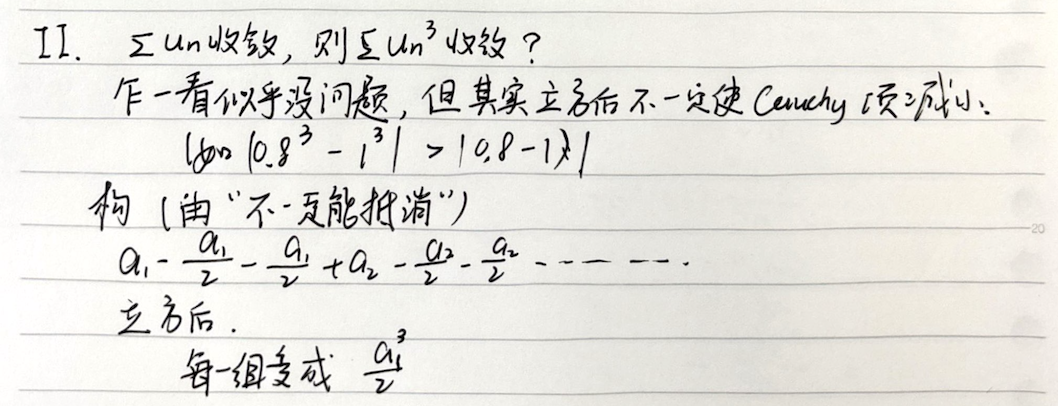 II. Σ Un收敛，则Σ Un³ 收敛？
乍一看似乎没问题，但其实立方后不一定使 Cauchy 项减小：
(如 |0.8³ - 1³| > |0.8 - 1|)
构 (由“不一定能抵消”)
a₁ - a₁/2 - a₁/2 + a₂ - a₂/2 - a₂/2 ------- .
立方后.
每一组变成 a₁³/2
20